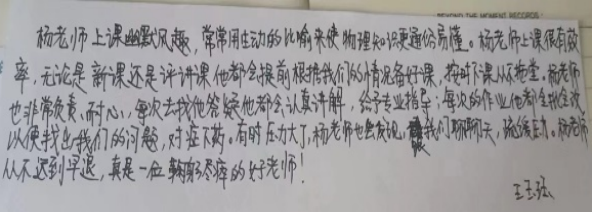 BEYOND THE MOMENT RECORDS
杨老师上课幽默风趣，常常用生动的比喻来使物理知识更通俗易懂。杨老师上课很有效
率，无论是新课还是评讲课他都会提前根据我们的情况备好课，按时下课从不拖堂。杨老师
也非常负责、耐心，每次去找他答疑他都会认真讲解，给予专业指导，每次的作业他都会批全改
以便找出我们的问题，对症下药。有时压力大了，杨老师也会发现，跟我们聊聊天，缓解压力。杨老师
从不迟到早退，真是一位鞠躬尽瘁的好老师！